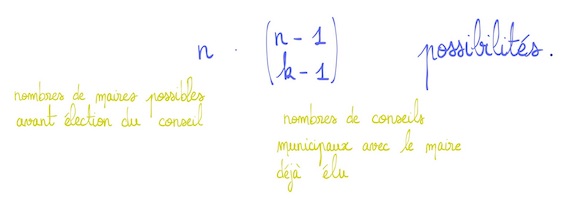 n · (n - 1
k - 1) possibilités.
nombres de maires possibles
avant élection du conseil
nombres de conseils
municipaux avec le maire
déjà élu